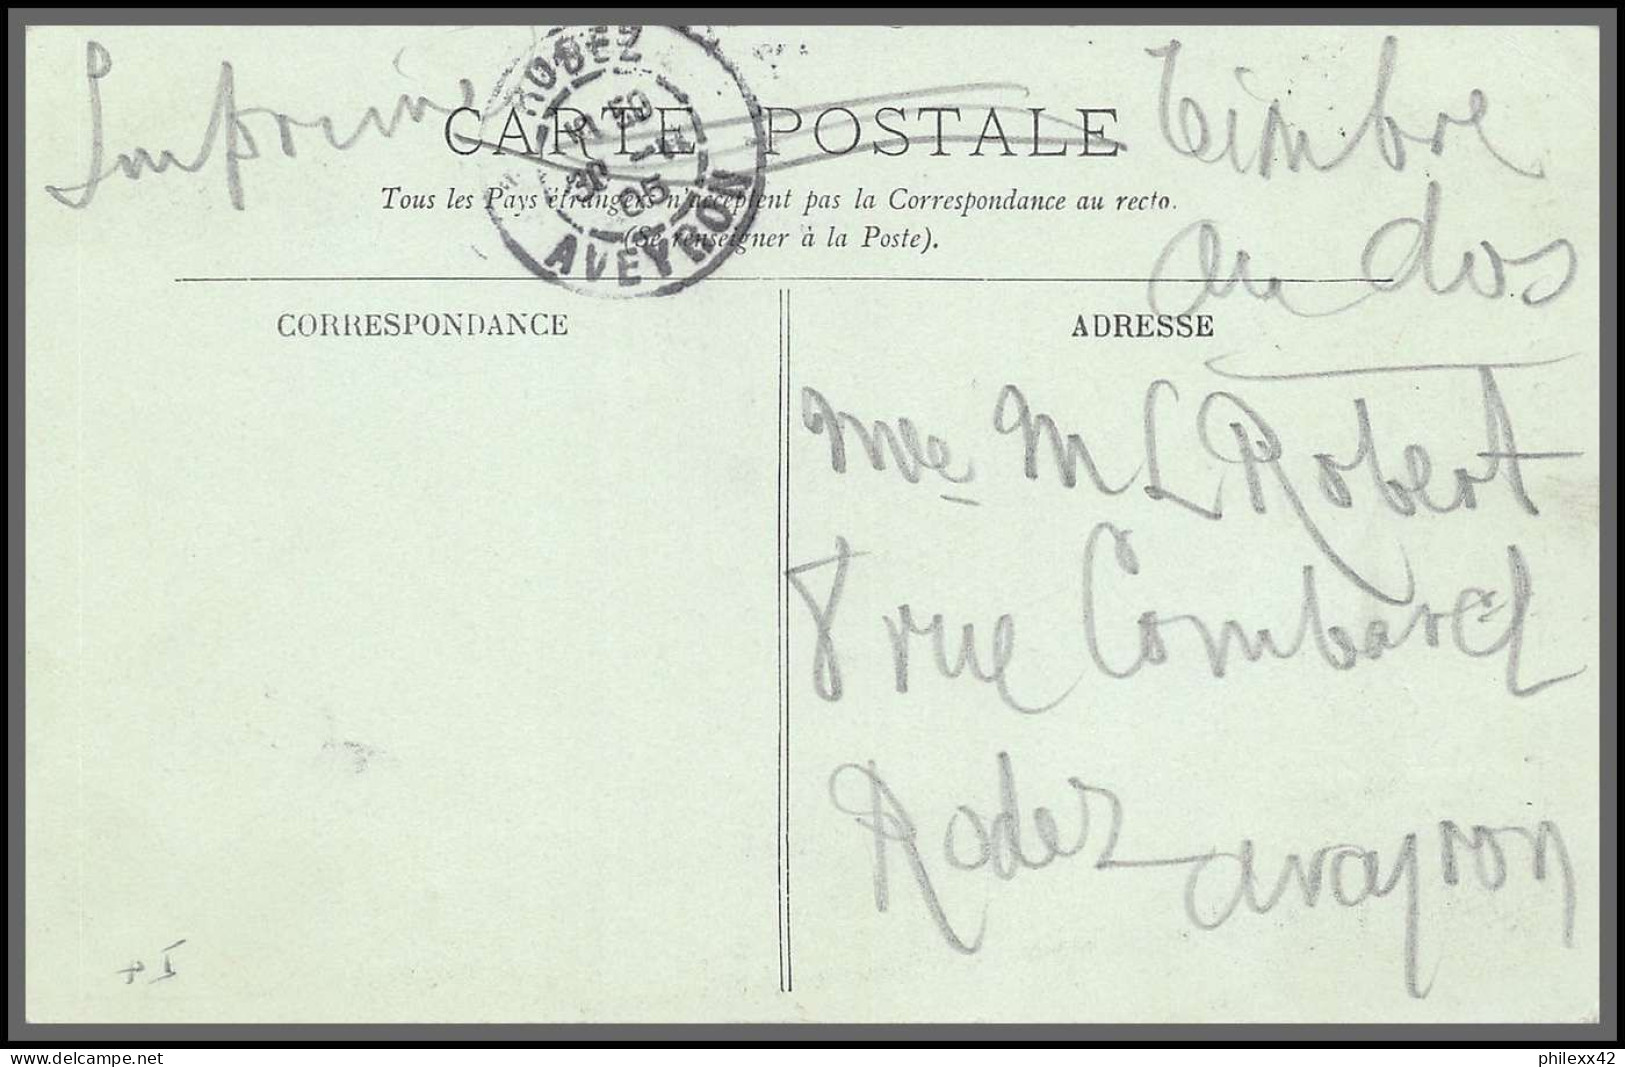 Imprimé
Timbre
au dos
CARTE POSTALE
Tous les Pays étrangers n'acceptent pas la Correspondance au recto.
(Se renseigner à la Poste).
RODEZ
05
AVEYRON
CORRESPONDANCE
ADRESSE
Mlle M L Robert
8 rue Combarel
Rodez Aveyron
www.delcampe.net
philexx42